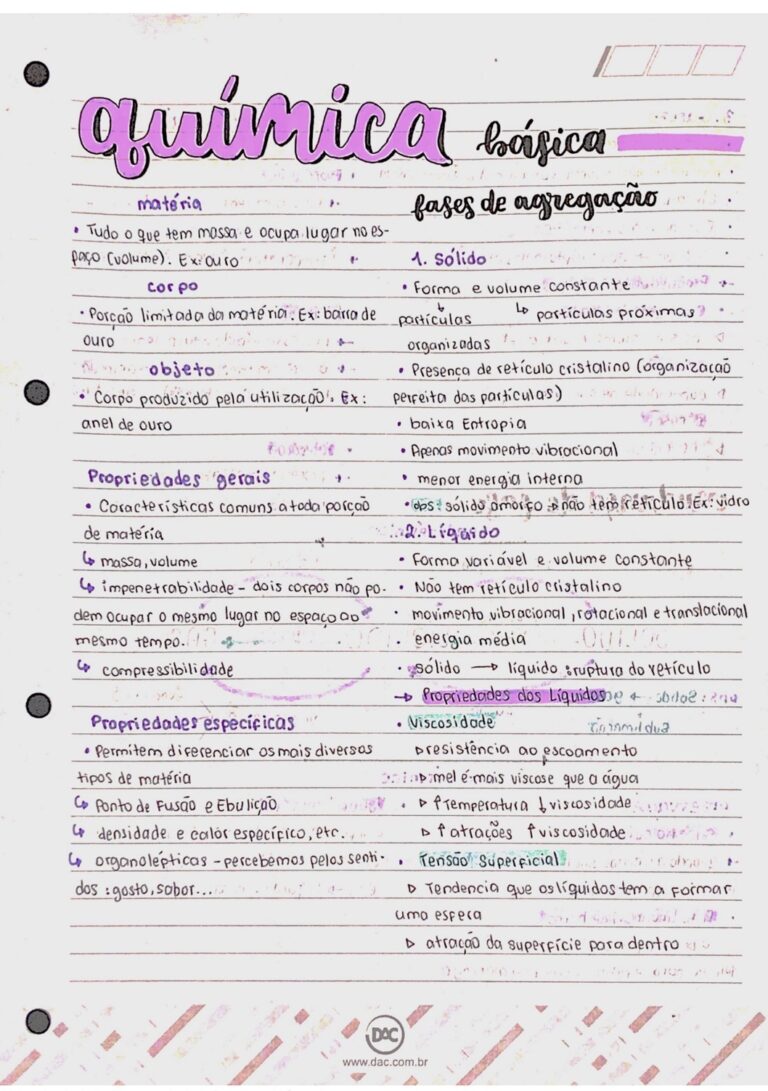 química básica
matéria
• Tudo o que tem massa e ocupa lugar no es-
paço (volume). Ex: ouro
corpo
• Porção limitada da matéria. Ex: barra de
ouro
objeto
• Corpo produzido pela utilização. Ex:
anel de ouro
Propriedades gerais
• Características comuns a toda porção
de matéria
↳ massa, volume
↳ impenetrabilidade - dois corpos não po-
dem ocupar o mesmo lugar no espaço ao
mesmo tempo.
↳ compressibilidade
Propriedades específicas
• Permitem diferenciar os mais diversos
tipos de matéria
↳ Ponto de Fusão e Ebulição
↳ densidade e calor específico, etc.
↳ organolépticas - percebemos pelos senti-
dos: gosto, sabor...
fases de agregação
1. Sólido
• Forma e volume constante
↳ partículas próximas
partículas
organizadas
• Presença de retículo cristalino (organização
perfeita das partículas)
• baixa Entropia
• Apenas movimento vibracional
• menor energia interna
• obs: sólido amorfo → não tem retículo. Ex: vidro
2. Líquido
• Forma variável e volume constante
• Não tem retículo cristalino
• movimento vibracional, rotacional e translacional
• energia média
• sólido → líquido: ruptura do retículo
→ Propriedades dos Líquidos
• Viscosidade
▹ resistência ao escoamento
▹ mel é mais viscose que a água
▹ ↑ Temperatura ↓ viscosidade
▹ ↑ atrações ↑ viscosidade
• Tensão Superficial
▹ Tendencia que os líquidos tem a formar
uma esfera
▹ atração da superfície para dentro
DAC
www.dac.com.br